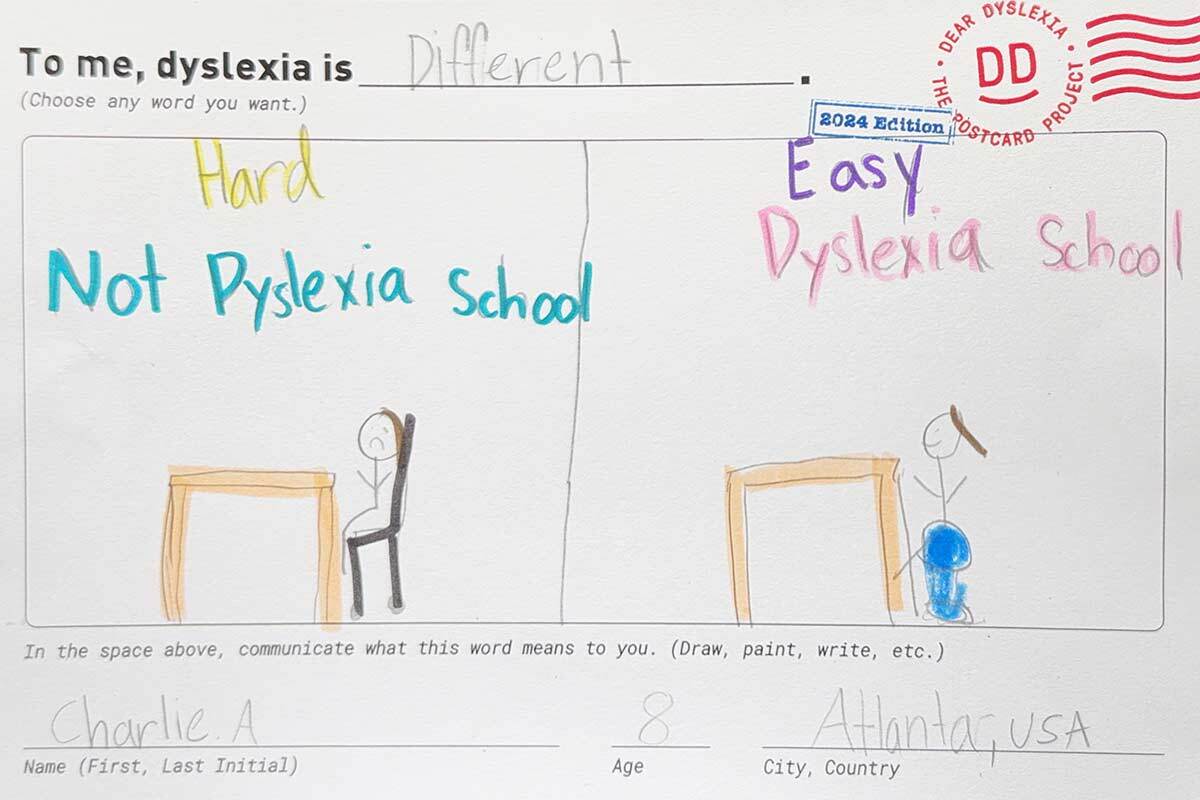 To me, dyslexia is Different.
(Choose any word you want.)
DEAR DYSLEXIA • THE POSTCARD PROJECT •
DD
2024 Edition
Hard
Not Dyslexia School
Easy
Dyslexia School
In the space above, communicate what this word means to you. (Draw, paint, write, etc.)
Charlie. A
Name (First, Last Initial)
8
Age
Atlanta, USA
City, Country